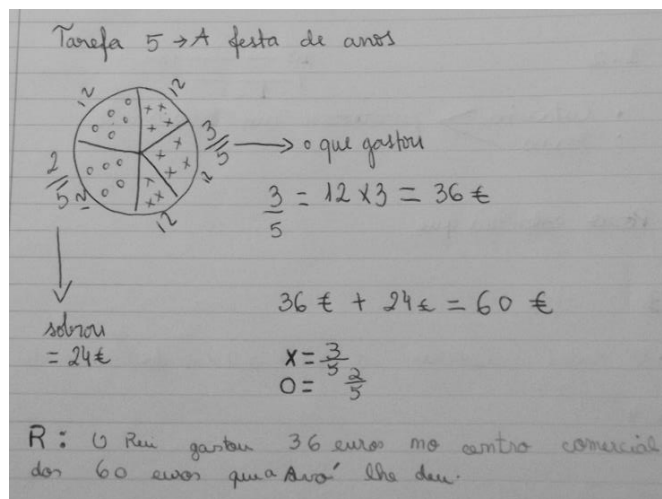 Tarefa 5 → A festa de anos
12
12
2/5
12
12
12
3/5 → o que gastou
3/5 = 12 x 3 = 36 €
36 € + 24 € = 60 €
sobrou
= 24 €
X = 3/5
O = 2/5
R: O Rui gastou 36 euros no centro comercial
dos 60 euros que a Avó lhe deu.